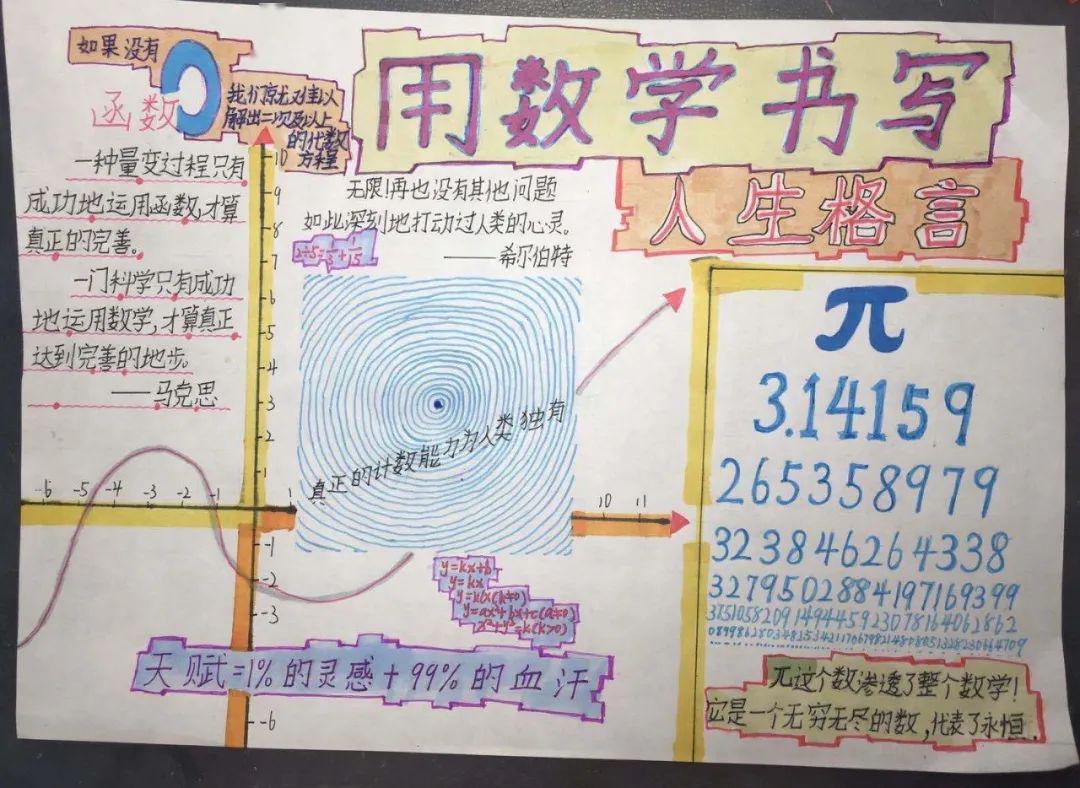 用数学书写
人生格言
如果没有
函数
我们竟无难以
解出二次及以上
的代数
方程
一种量变过程只有
成功地运用函数,才算
真正的完善。
一门科学只有成功
地运用数学,才算真正
达到完善的地步。
——马克思
无限!再也没有其他问题
如此深刻地打动过人类的心灵。
——希尔伯特
2÷5=1/3+1/15
真正的计数能力为人类独有
10
9
8
7
6
5
4
3
2
1
-6 -5 -4 -3 -2 -1 1 10 11
-1
-2
-3
-6
y=kx+b
y=kx
y=k/x(k≠0)
y=ax²+bx+c(a≠0)
x²+y²=k(k>0)
天赋=1%的灵感+99%的血汗
π
3.14159
265358979
323846264338
3279502884197169399
3751058209149445923078164062862
π这个数渗透了整个数学!
它是一个无穷无尽的数,代表了永恒.